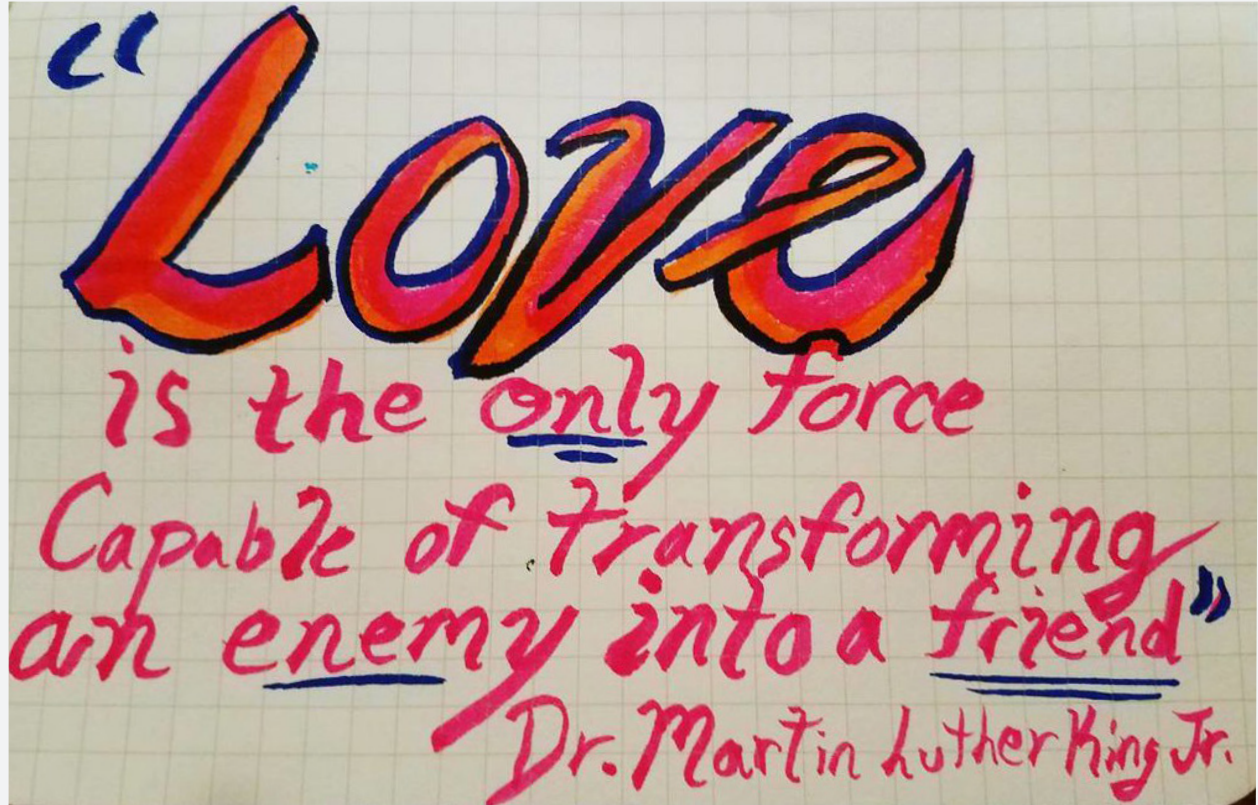 "Love
is the only force
Capable of transforming
an enemy into a friend"
Dr. Martin Luther King Jr.